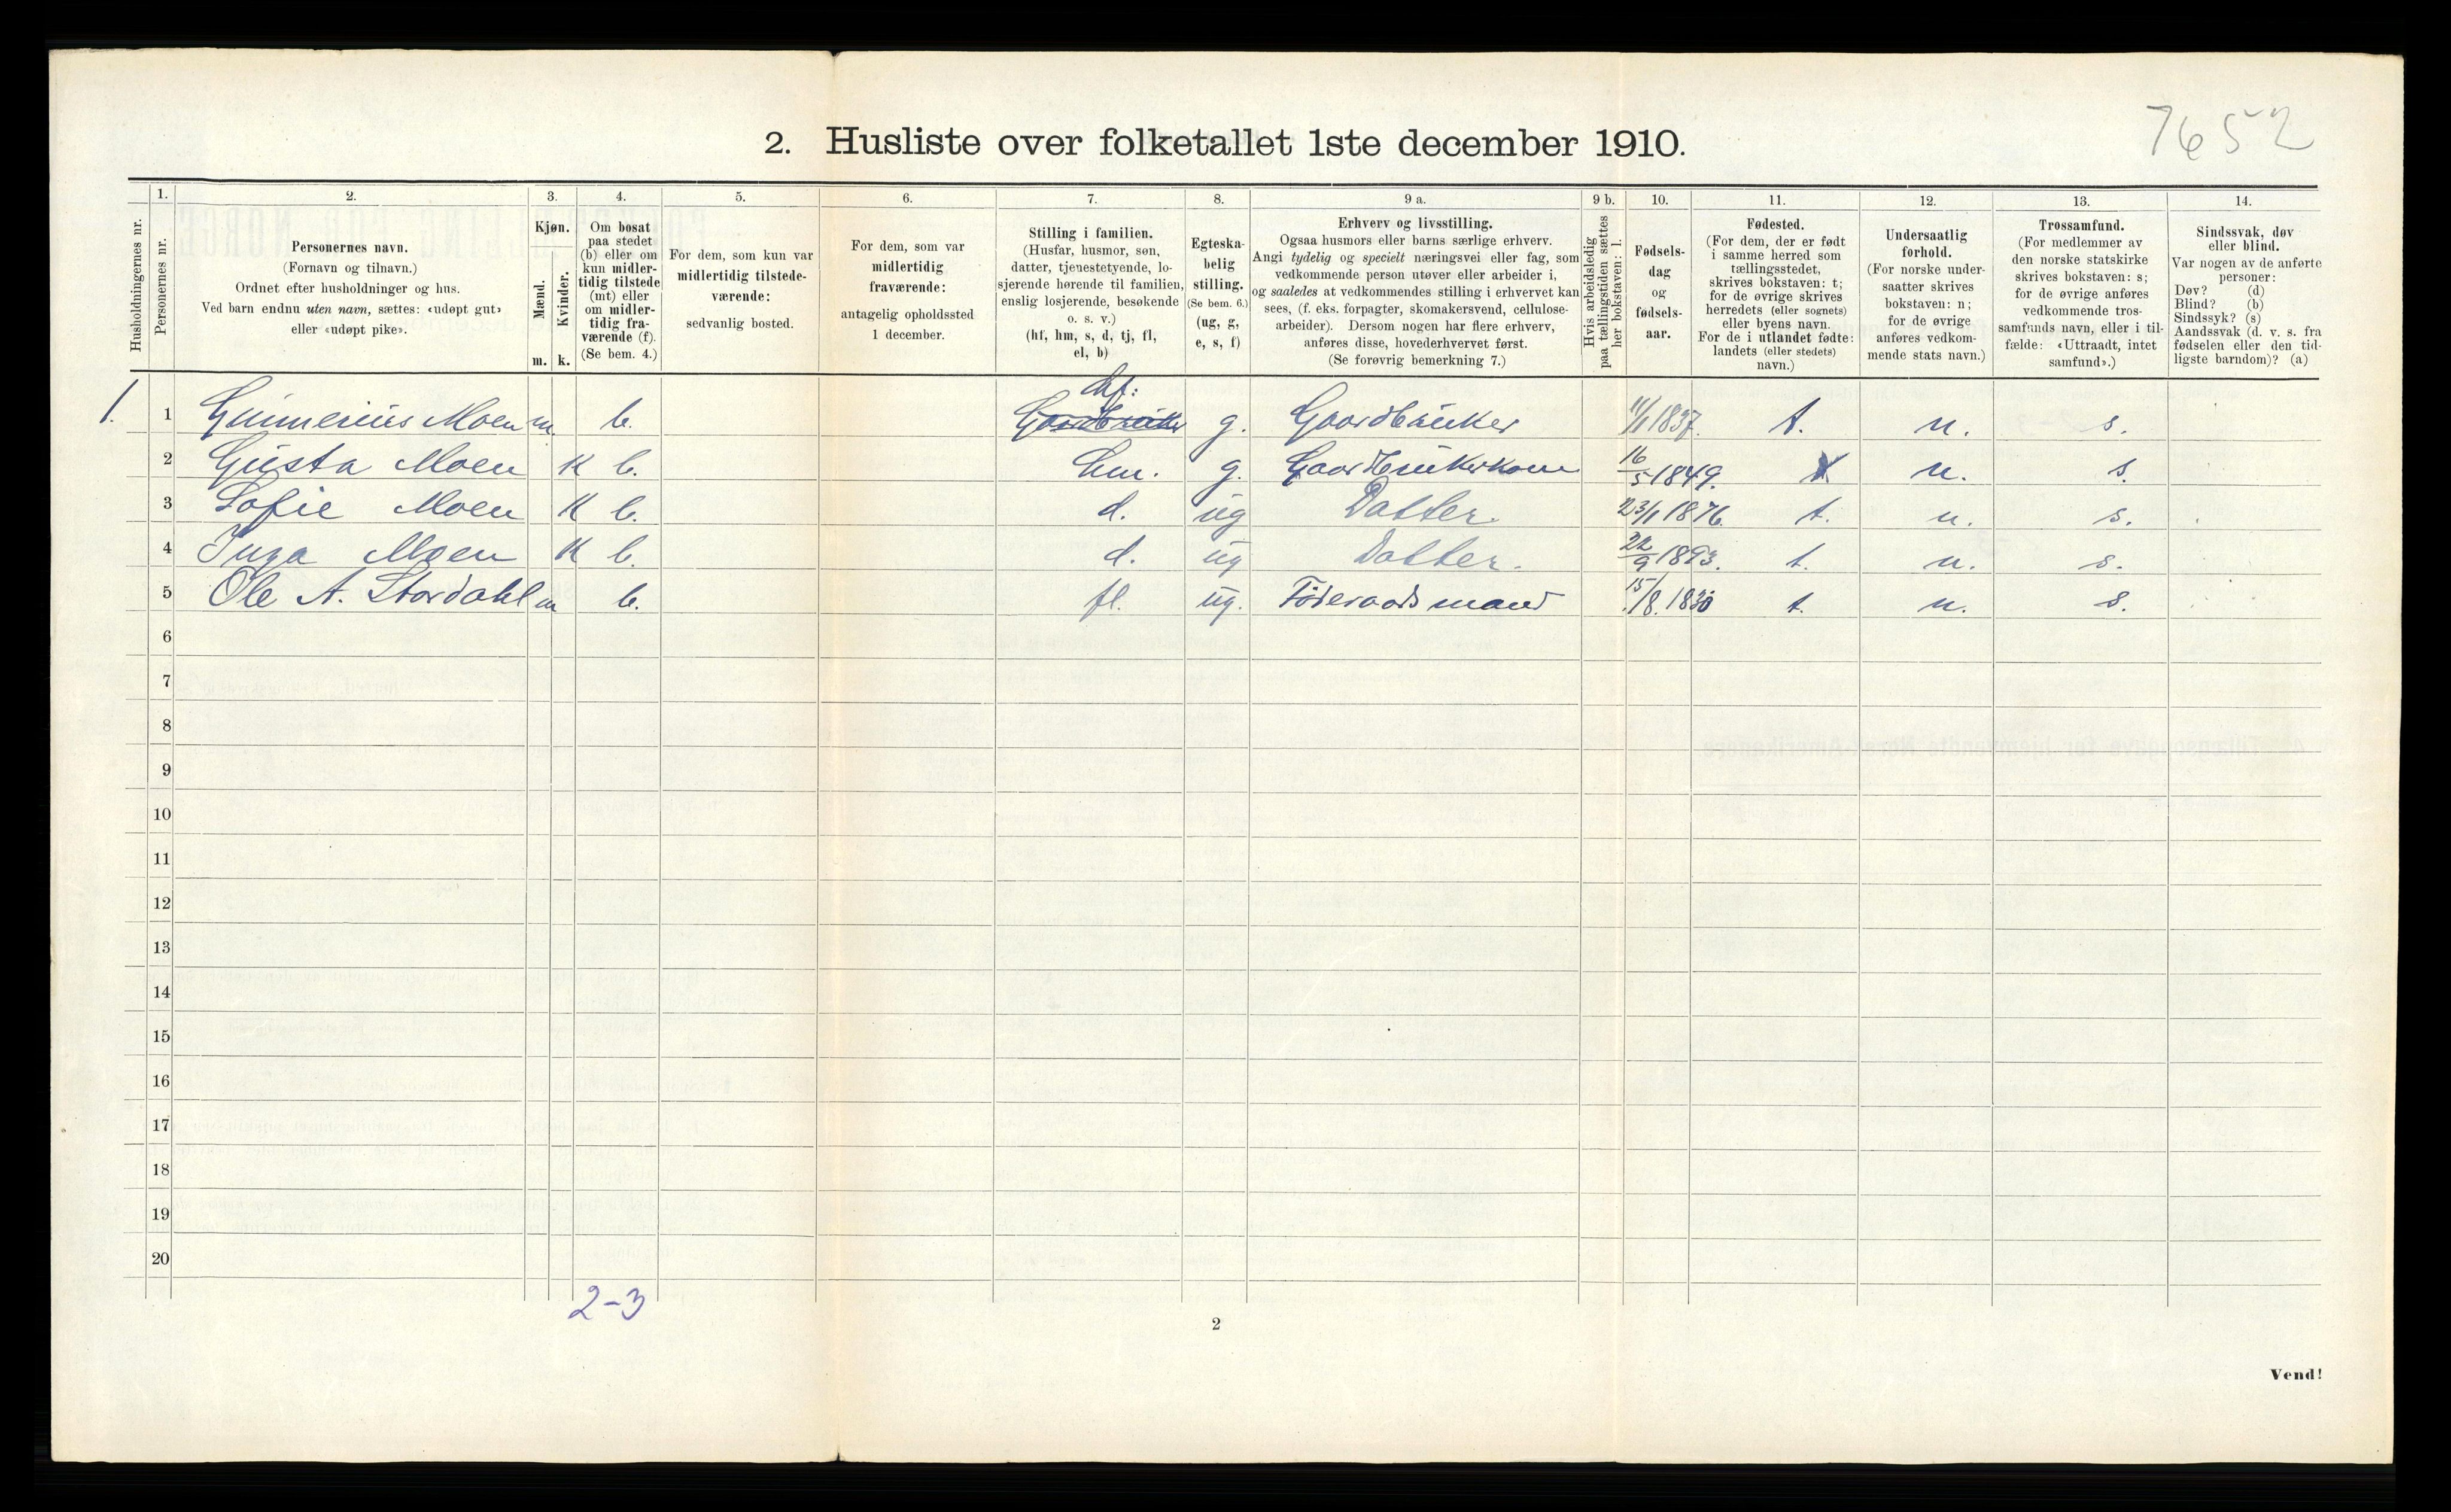 7652
2. Husliste over folketallet 1ste december 1910.
Husholdningernes nr.
1.
Personernes nr.
2.
Personernes navn.
(Fornavn og tilnavn.)
Ordnet efter husholdninger og hus.
Ved barn endnu uten navn, sættes: «udøpt gut»
eller «udøpt pike».
3.
Kjøn.
Mænd.
m.
Kvinder.
k.
4.
Om bosat
paa stedet
(b) eller om
kun midler-
tidig tilstede
(mt) eller
om midler-
tidig fra-
værende (f).
(Se bem. 4.)
5.
For dem, som kun var
midlertidig tilstede-
værende:
sedvanlig bosted.
6.
For dem, som var
midlertidig
fraværende:
antagelig opholdssted
1 december.
7.
Stilling i familien.
(Husfar, husmor, søn,
datter, tjenestetyende, lo-
sjerende hørende til familien,
enslig losjerende, besøkende
o. s. v.)
(hf, hm, s, d, tj, fl,
el, b)
8.
Egteska-
belig
stilling.
(Se bem. 6.)
(ug, g,
e, s, f)
9 a.
Erhverv og livsstilling.
Ogsaa husmors eller barns særlige erhverv.
Angi tydelig og specielt næringsvei eller fag, som
vedkommende person utøver eller arbeider i,
og saaledes at vedkommendes stilling i erhvervet kan
sees, (f. eks. forpagter, skomakersvend, cellulose-
arbeider). Dersom nogen har flere erhverv,
anføres disse, hovederhvervet først.
(Se forøvrig bemerkning 7.)
9 b.
Hvis arbeidsledig
paa tællingstiden sættes
her bokstaven: l.
10.
Fødsels-
dag
og
fødsels-
aar.
11.
Fødested.
(For dem, der er født
i samme herred som
tællingsstedet,
skrives bokstaven: t;
for de øvrige skrives
herredets (eller sognets)
eller byens navn.
For de i utlandet fødte:
landets (eller stedets)
navn.)
12.
Undersaatlig
forhold.
(For norske under-
saatter skrives
bokstaven: n;
for de øvrige
anføres vedkom-
mende stats navn.)
13.
Trossamfund.
(For medlemmer av
den norske statskirke
skrives bokstaven: s;
for de øvrige anføres
vedkommende tros-
samfunds navn, eller i til-
fælde: «Uttraadt, intet
samfund».)
14.
Sindssvak, døv
eller blind.
Var nogen av de anførte
personer:
Døv? (d)
Blind? (b)
Sindssyk? (s)
Aandssvak (d. v. s. fra
fødselen eller den tid-
ligste barndom)? (a)
hf:
1. 1 Gunnerius Moen m. b. Gaardbruker g. Gaardbruker 11/1 1837. t. n. s.
2 Gusta Moen K b. hm. g. Gaardbrukerkone 16/5 1849. t n. s.
3 Sofie Moen K b. d. ug Datter. 23/1 1876. t. n. s.
4 Inga Moen K b. d. ug Datter. 22/9 1893. t. n. s.
5 Ole A. Stordahl m b. fl. ug. Föderaadsmand 15/8. 1830 t. n. s.
6
7
8
9
10
11
12
13
14
15
16
17
18
19
20
2-3
2
Vend!